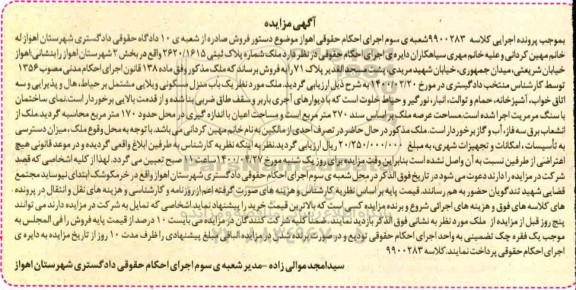 آگهی مزایده
بموجب پرونده اجرایی کلاسه ۹۹۰۰۲۸۳ شعبه ی سوم اجرای احکام حقوقی اهواز موضوع دستور فروش صادره از شعبه ی ۱۰ دادگاه حقوقی دادگستری شهرستان اهواز له
خانم مهین کردانی و علیه خانم مهری سیاهکاران دایره ی اجرای احکام حقوقی در نظر دارد ملک شماره پلاک ثبتی ۲۶۲۰/۱۶۱۵ واقع در بخش ۲ شهرستان اهواز را بنشانی: اهواز
خیابان شریعتی، میدان جمهوری، خیابان شهید مریدی پلاک ۷۱ را به فروش برساند که ملک مذکور وفق ماده ۱۳۸ قانون اجرای احکام مدنی مصوب ۱۳۵۶
توسط کارشناس منتخب دادگستری در مورخ ۱۴۰۰/۲/۲۰ به شرح ذیل ارزیابی گردید. ملک مورد نظر یک باب منزل مسکونی ویلایی مشتمل بر حیاط، هال و پذیرایی و سه
اتاق خواب، آشپزخانه، حمام و توالت، انبار، نورگیر و حیاط خلوت است که با دیوارهای آجری باربر و سقف طاق ضربی بنا شده و از قدمت بالایی برخوردار است. نمای ساختمان
با سنگ مرمریت اجرا شده است. مساحت عرصه ملک براساس سند ۲۷۰ متر مربع است و مساحت اعیان با اندازه گیری در محل حدود ۱۷۰ متر مربع محاسبه گردید. ملک از
انشعاب برق سه فاز، آب و گاز برخوردار است. ملک مذکور در حال حاضر در تصرف احدی از مالکین به نام خانم مهین کردانی می باشد. با توجه به محل وقوع ملک، میزان دسترسی
به تأسیسات، امکانات و تجهیزات شهری، به مبلغ ۲۰/۲۵۰/۰۰۰/۰۰۰ ریال ارزیابی گردید. نظر به اینکه نظریه کارشناس به طرفین ابلاغ واقعی گردیده و در موعد قانونی هیچ
اعتراضی از طرفین نسبت به آن واصل نشده است بنابراین وقت مزایده برای روز یک شنبه مورخ ۱۴۰۰/۴/۲۷ ساعت ۱۰ صبح تعیین می گردد. لهذا از کلیه اشخاصی که قصد
شرکت در مزایده را دارند دعوت می شود در تاریخ فوق الذکر در محل شعبه ی سوم اجرای احکام حقوقی دادگستری شهرستان اهواز واقع در خرمکوشک ابتدای نیوساید مجتمع
قضایی شهید تندگویان حضور به هم رسانند. قیمت پایه بر اساس نظریه کارشناس و هزینه های صورت گرفته اعم از روزنامه و کارشناسی و هزینه های نقل و انتقال در پرونده
های کلاسه فوق و هزینه های اجرائی شروع و برنده مزایده کسی است که بالاترین قیمت خرید را پیشنهاد نماید. اشخاصی که تمایل به شرکت در مزایده دارند می توانند
پنج روز قبل از مزایده از ملک مورد نظر به نشانی فوق الذکر بازدید نمایند. ضمنا کلیه شرکت کنندگان در مزایده می بایست ۱۰ درصد از قیمت پایه فروش را فی المجلس به
موجب یک فقره چک تضمینی به واحد اجرای احکام حقوقی تودیع و در صورت برنده شدن در مزایده، الباقی مبلغ پیشنهادی را ظرف مدت ۱۰ روز از تاریخ مزایده به دایره ی
اجرای احکام حقوقی پرداخت نمایند. کلاسه ۹۹۰۰۲۸۳
سید امجد موالی زاده - مدیر شعبه ی سوم اجرای احکام حقوقی دادگستری شهرستان اهواز